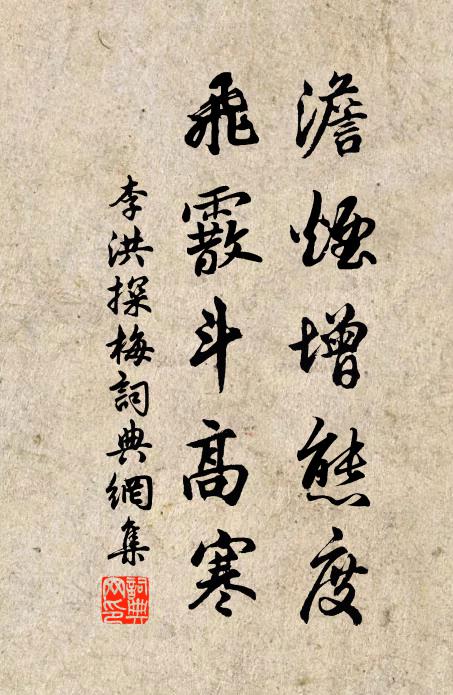 澹煙增態度
飛霰斗高寒
李洪探梅詞典網集
詞典